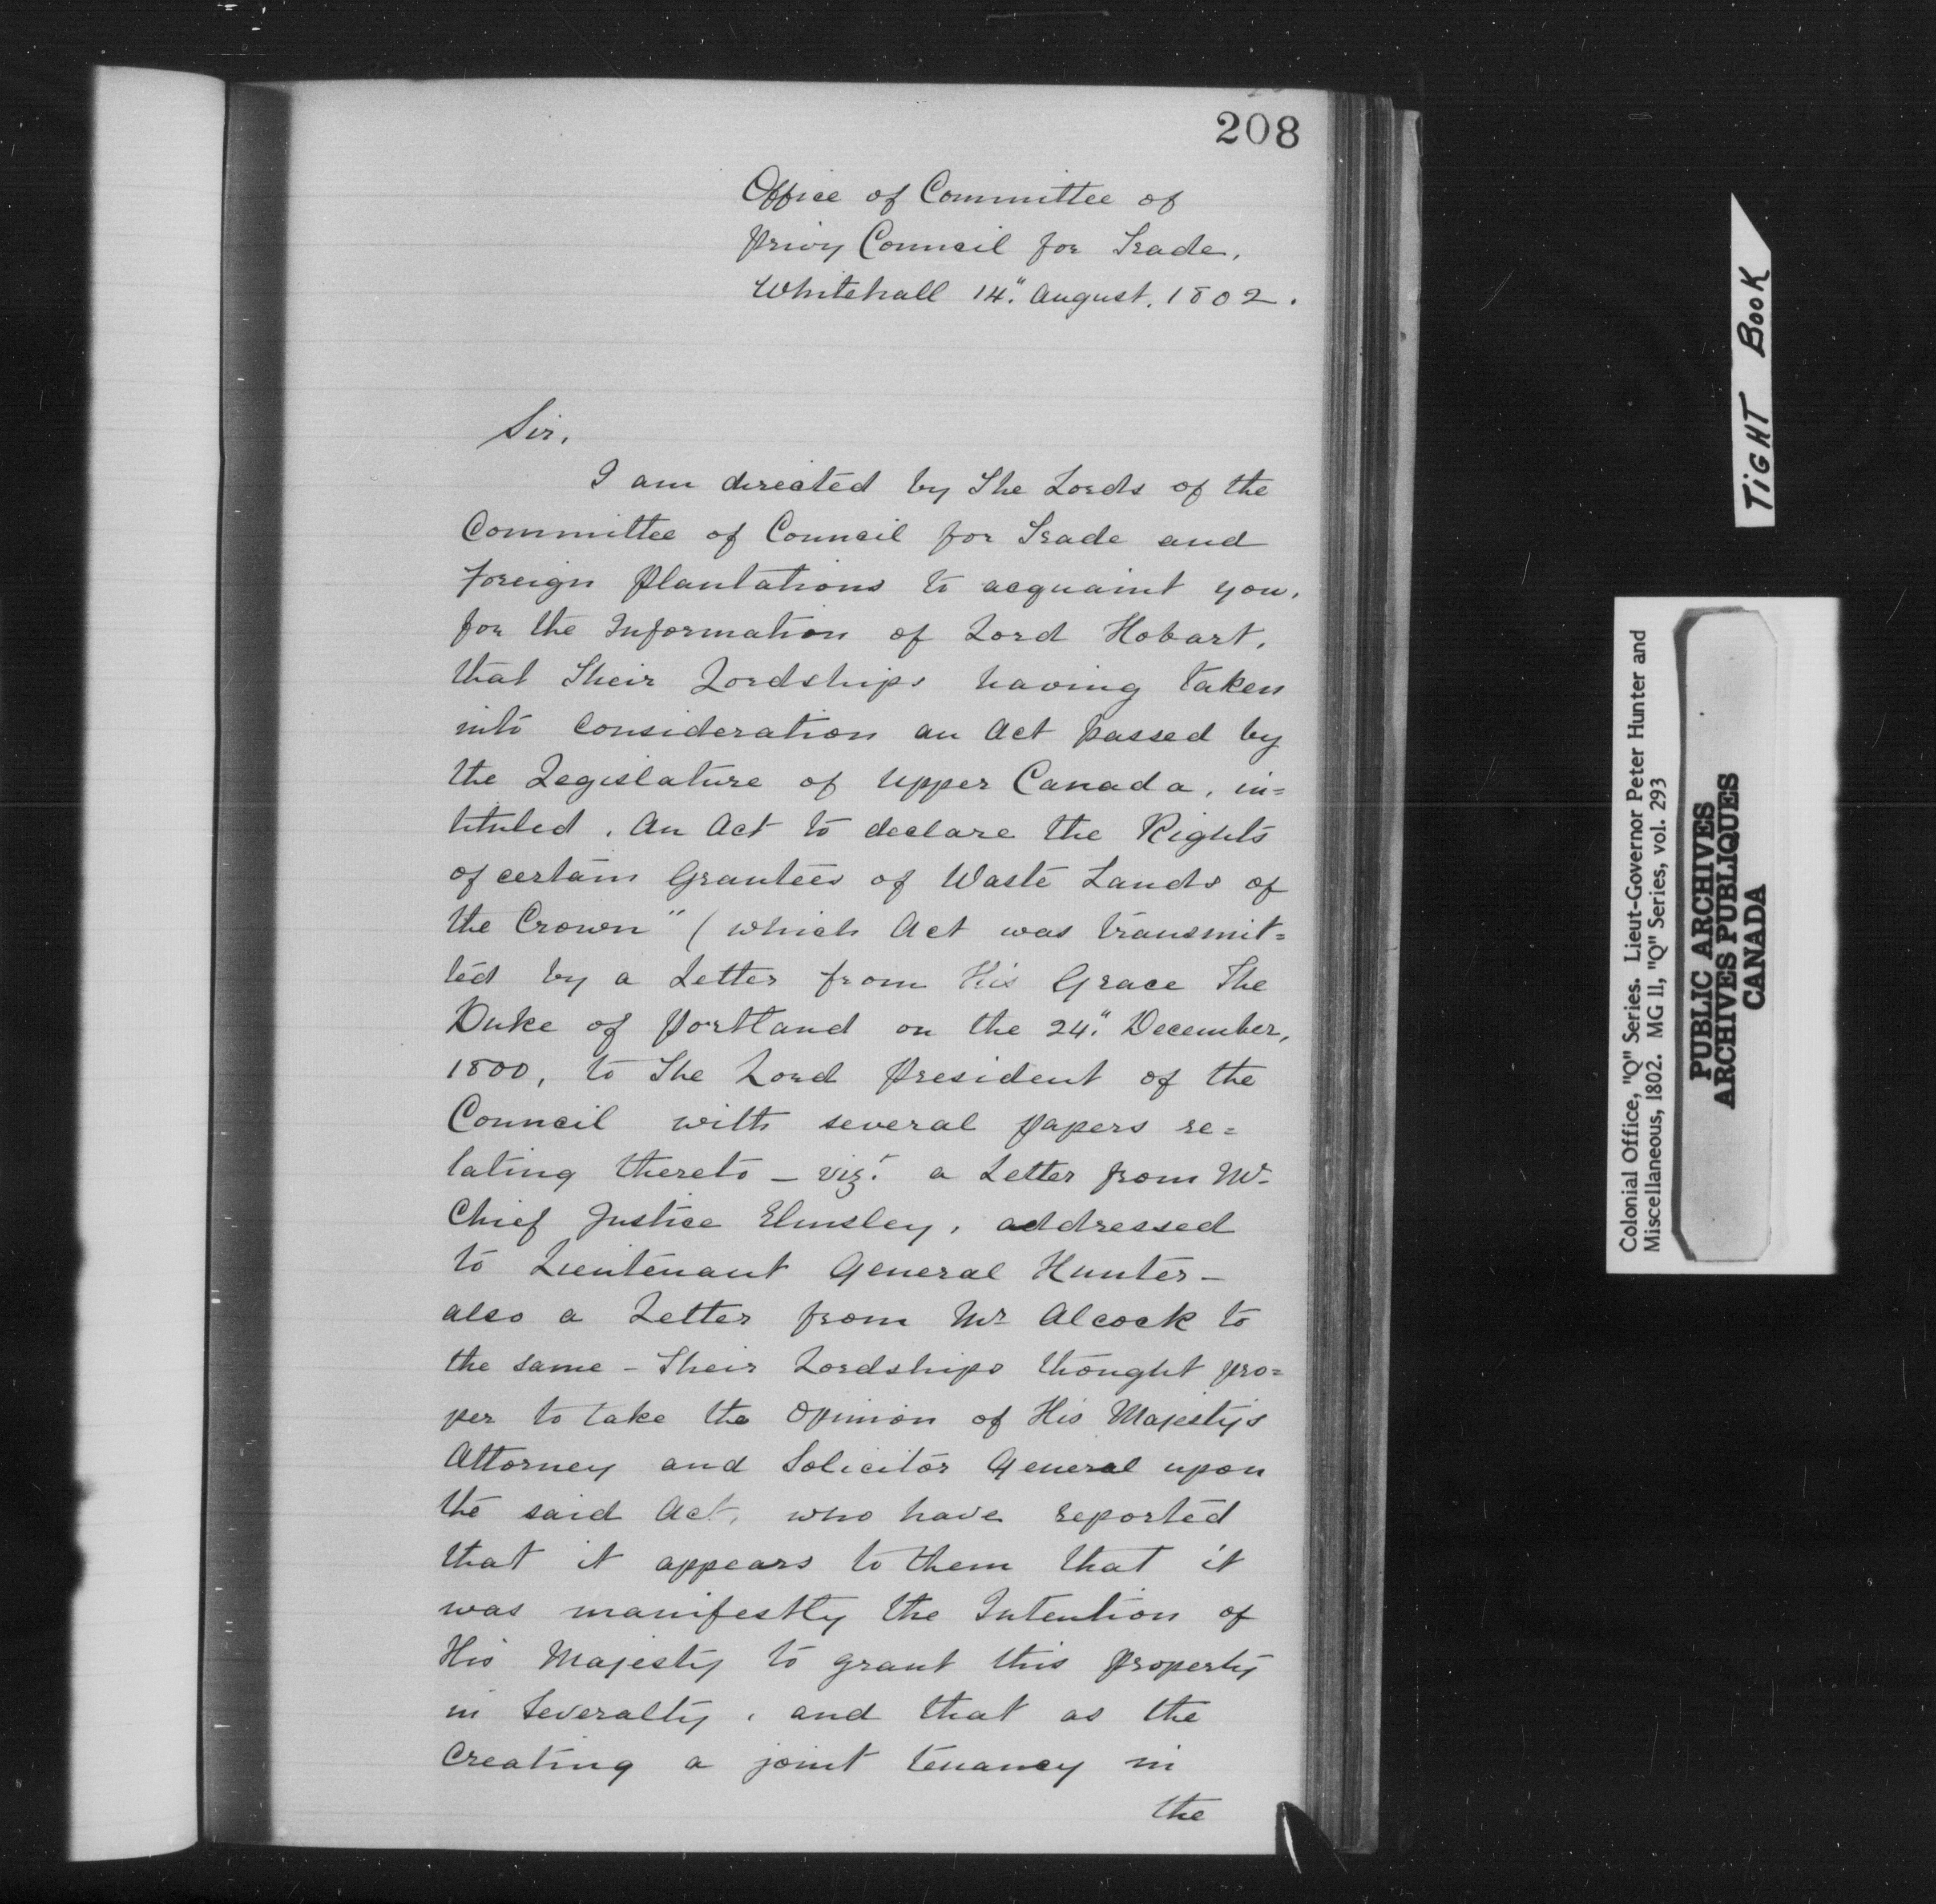 208
Office of Committee of
Privy Council for Trade,
Whitehall 14." August, 1802.
Sir,
I am directed by The Lords of the
Committee of Council for Trade and
Foreign Plantations to acquaint you,
for the Information of Lord Hobart,
that Their Lordships having taken
into Consideration an Act passed by
the Legislature of Upper Canada, in=
tituled, An Act to declare the Rights
of certain Grantees of Waste Lands of
the Crown" (which Act was transmit=
ted by a Letter from His Grace The
Duke of Portland on the 24." December,
1800, to The Lord President of the
Council with several Papers re=
lating thereto – vizt. a Letter from Mr
Chief Justice Elmsley, addressed
to Lieutenant General Hunter –
also a Letter from Mr Alcock to
the same – Their Lordships thought pro=
per to take the Opinion of His Majestys
Attorney and Solicitor General upon
the said Act, who have reported
that it appears to them that it
was manifestly the Intention of
His Majesty to grant this Property
in Severalty, and that as the
Creating a joint tenancy in
the
TIGHT BOOK
Colonial Office, "Q" Series. Lieut-Governor Peter Hunter and
Miscellaneous, 1802. MG 11, "Q" Series, vol. 293
PUBLIC ARCHIVES
ARCHIVES PUBLIQUES
CANADA